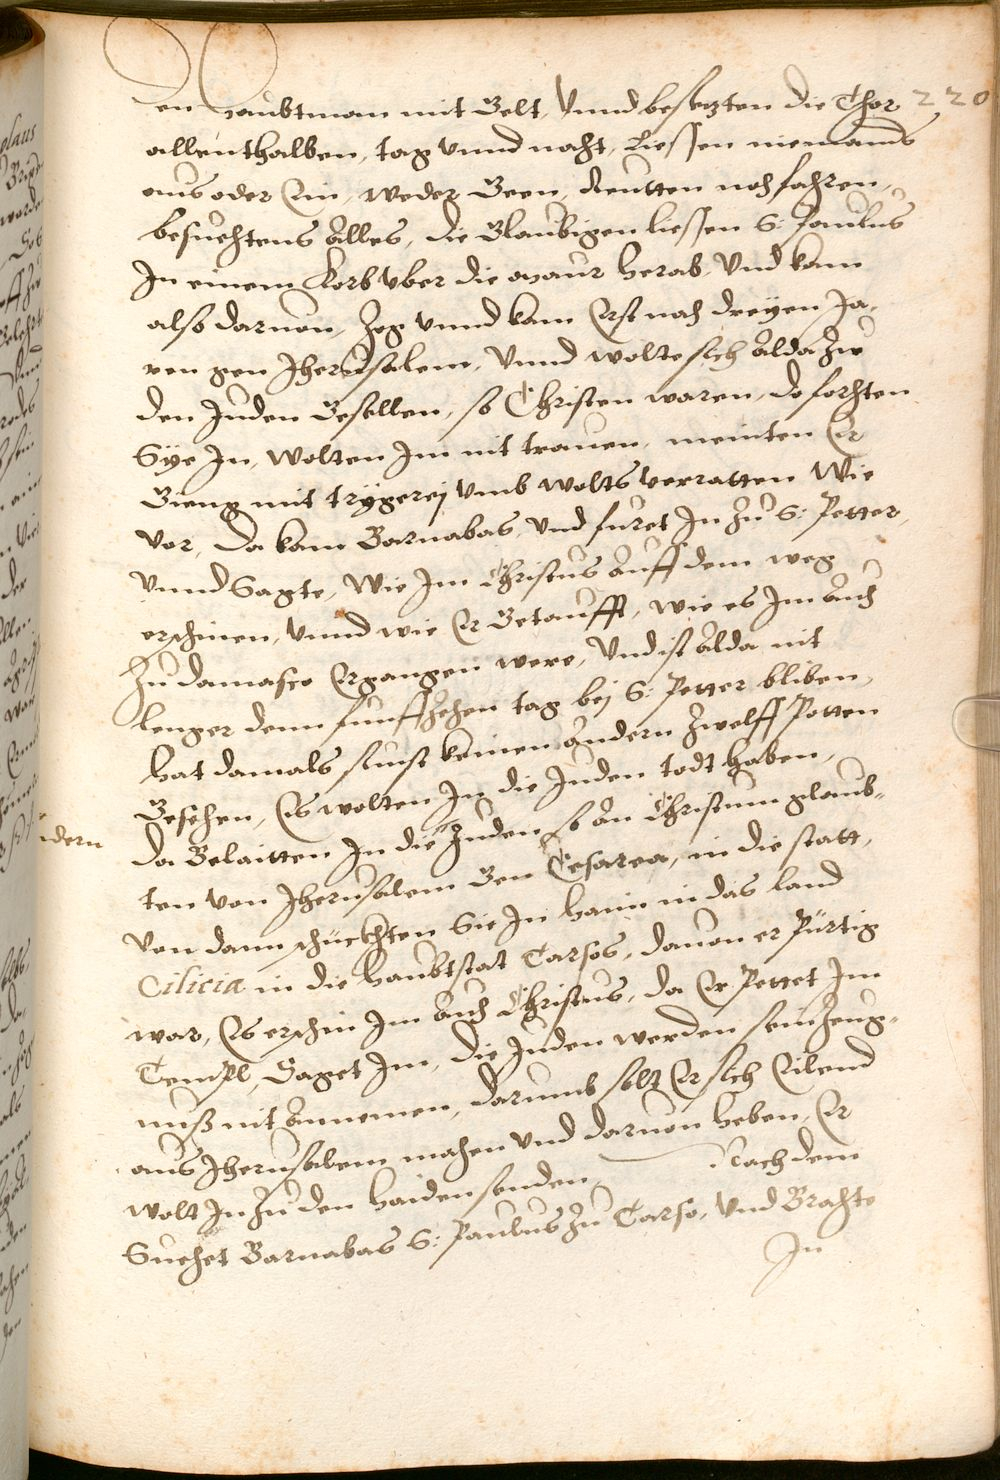 en haubtman mit Gelt, Vnnd besetzten die Thor 220
allenthalben, tag vnnd nacht, Liessen niemands
aus oder Ein, weder Geen, Reutten noch fahren,
besuchtens Alles, die Glaubigen liessen S: Paulus
In einem Korb vber die Maur herab, Vnd kam
also daruon, Zog vnnd kam Erst nach dreyen Ja,
ren gen Jherusalem, Vnnd wolte sich Alda Zu
den Juden Gesellen, so Christen waren, do forchten
Sye In, wolten Im nit trauen, meinten Er
Gieng mit trÿgereÿ vmb wolts verratten Wie
Vor, Da kam Barnabas, vnd furet In Zu S: Petter,
Vnnd Sagte, Wie Im Christus Auff dem weg
erschinen, Vnnd wie Er Getaufft, Wie es Im Auch
Zu Damasco Ergangen were, Vnd ist Alda nit
lenger denn funffzehen tag bej S: Petter bliben,
hat damals sunst keinen Andern Zwelff Potten
Gesehen, Es wolten In die Juden todt haben,
da Belaitten In die Juden so An Christum glaub,
ten von Jherusalem Gen Cesarea, in die statt,
Von dann schückhten Sie In haim in das land
Cilicia in die haubtstat Tarsos, dauon er Pürtig
war, Es erschin Im Auch Christus, da Er Pettet Im
Templ, Saget Im, die Juden werden sein Zeug,
nuß nit Annemen, darumb solt Er sich Eilend
aus Jherusalem machen vnd daruon heben, Er
wolt In Zu den haiden senden, Nach dem
Suchet Barnabas S: Paulus Zu Tarso, Vnd Brachte
In